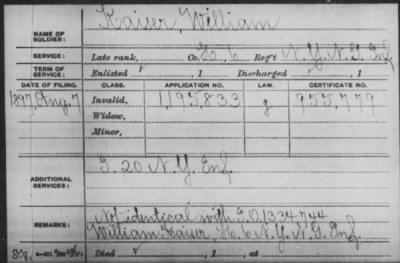 NAME OF SOLDIER: Kaiser, William
SERVICE: Late rank, Co. H, 6 Reg't N.Y. N.G. Inf
TERM OF SERVICE: Enlisted , 1 Discharged , 1
DATE OF FILING. CLASS. APPLICATION NO. LAW. CERTIFICATE NO.
1897, Aug. 7 Invalid, 1,195,833 g 955,779
Widow,
Minor,
ADDITIONAL SERVICES: G. 20 N.Y. Inf.
REMARKS: Not identical with I.O. 1334744
William Kaiser, H. 6 N.Y. N.G. Inf.
Died , 1 , at